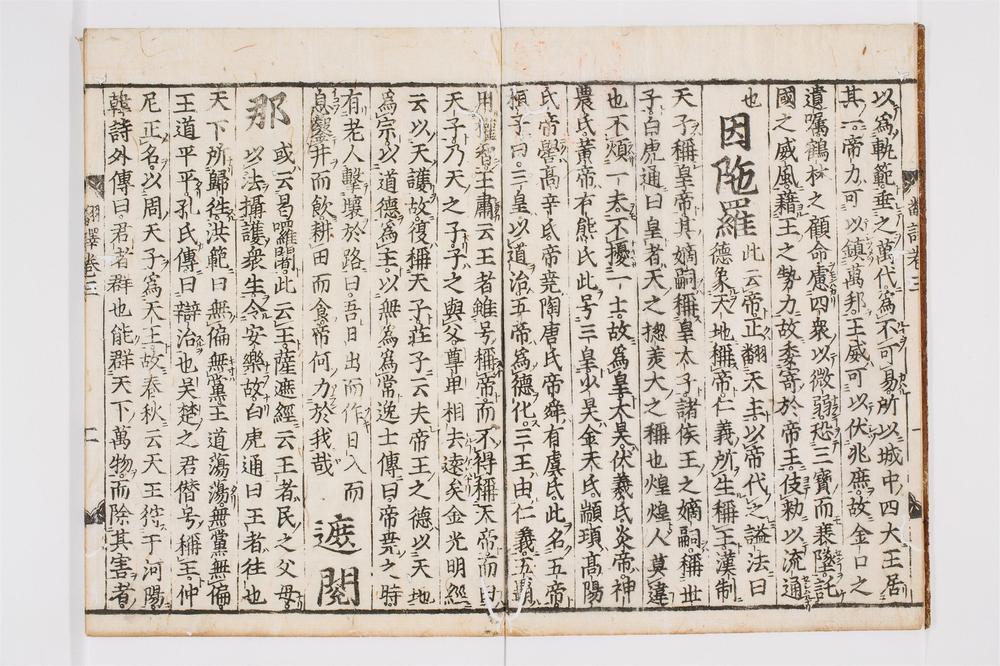 以為軌範垂之萬代為不可易所以城中四大王居
其一帝力可以鎮萬邦王威可以伏兆庶故金口之
遺囑鶴林之顧命慮四衆以微弱恐三寶而裴墜託
國之威風藉王之勢力故委寄於帝王伎勑以流通
也
因陁羅 此云帝正翻天主以帝代之謚法曰
德象天地稱帝仁義所生稱王漢制
天子稱皇帝其嫡嗣稱皇太子諸侯王之嫡嗣稱世
子白虎通曰皇者天之揔美大之稱也煌煌人莫違
也不煩一夫不擾一士故為皇太昊伏羲氏炎帝神
農氏黃帝有熊氏此号三皇少昊金天氏顓頊高陽
氏帝嚳高辛氏帝堯陶唐氏帝舜有虞氏此名五帝
桓子曰三皇以道治五帝為德化三王由仁義五覇
用權智王肅云王者雖号稱帝而不得稱天帝而曰
天子乃天之子子之與父尊卑相去遠矣金光明經
云以天護故復稱天子莊子云夫帝王之德以天地
為宗以道德為主以無為為常逸士傳曰帝堯之時
有老人擊壤於路曰吾日出而作日入而
息鑿井而飲耕田而食帝何力於我哉 遮閱
那 或云曷囉闍此云王薩遮經云王者民之父母
以法攝護衆生令安樂故白虎通曰王者往也
天下所歸往洪範曰無偏無黨王道蕩蕩無黨無偏
王道平平孔氏傳曰辯治也吴楚之君僣号稱王仲
尼正名以周天子為天王故春秋云天王狩于河陽
韓詩外傳曰君者群也能群天下萬物而除其害者
翻訳卷三
翻譯卷三